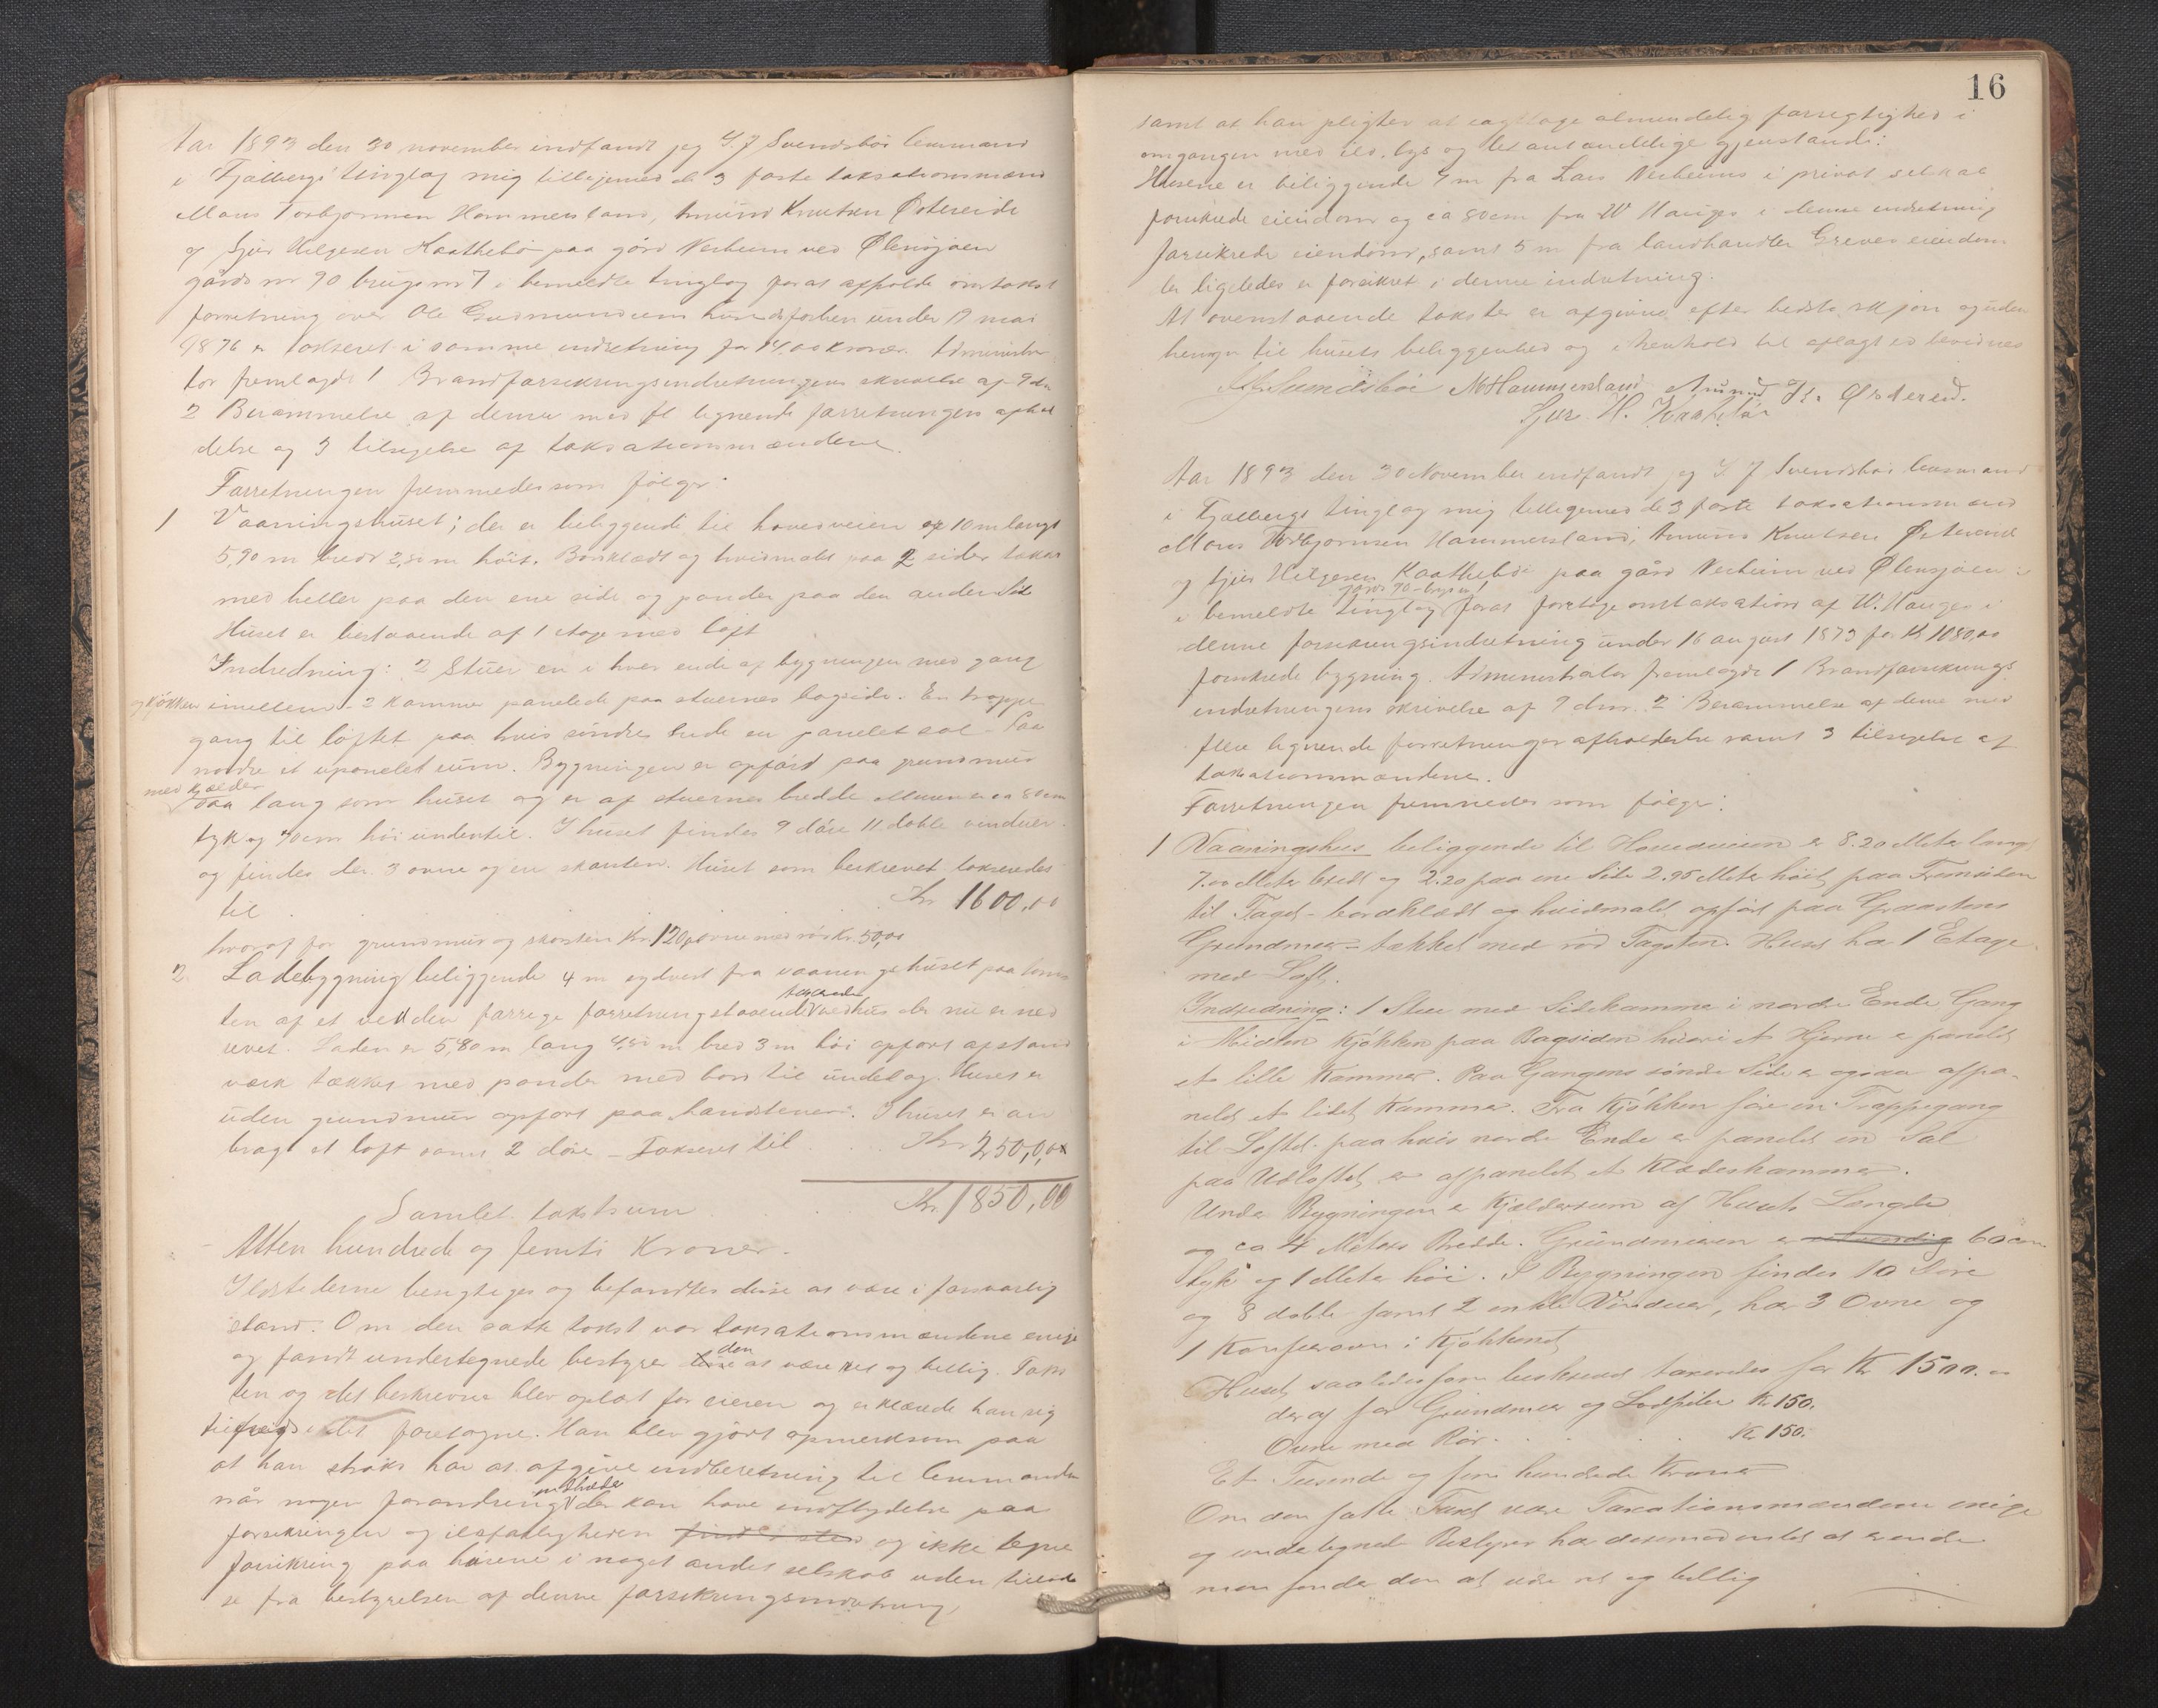 Aar 1893 den 30 november indfandt jeg S. J Svendsbøe lensmand
i Fjælbergs tinglag mig tilligemed de 3 faste taksationsmænd
Mons Torbjørnsen Hammersland, Amund Knutsen Østereide
og Sjur Helgesen Kaathebø paa gård Nerheim ved Ølensjøen
gårds nr 90 brugs nr 7 i bemeldte tinglag for at afholde omtakst
forretning over Ole Gudmundsens huse forhen under 19 mai
1876 er takseret i samme indretning for kroner. Administra
tor fremlagde 1 Brandforsikringsindretningens skrivelse af 9 dn
2 Berammelse af denne med fl lignende forretningers aphol
delse og 3 tilsigelse af taksationsmændene.
Forretningen fremmedes som følger:
1 Vaaningshuset; der er beliggende til hovedveien er 10 m langt
5,90 m bredt 2,50 m høit. Bordklædt og hvidmalt paa 2 sider takt
med heller paa den ene side og pander paa den anden side
Huset er bestaaende af 1 etage med loft
Indredning: 2 Stuer en i hver ende af bygningen med gang
og kjøkken imellem - 2 kammer panelede paa stuernes bagside. En trappe
gang til loftet paa hvis søndre ende en panelet sal - Paa
nordre et upanelet rum. Bygningen er opført paa grundmur
med kjælder
saa lang som huset og er af stuernes bredde Muren er ca 80 cm
tyk og 70 cm høi undertil. I huset findes 9 døre 11 doble vinduer
og findes der 3 ovne og en skorsten. Huset som beskrevet takseredes
til . . . Kr 1600,00
hvoraf for grundmur og skorsten Kr. 120, ovne med rør Kr. 50,00
2 Ladebygning beliggende 4 m sydvest fra vaaningshuset paa tom
takserede
ten af et ved den forrige forretning staaende vedhus der nu er ned
revet. Laden er 5,80 m lang 4,50 m bred 3 m høi opført af stav
værk tækket med pander med bord til underlag. Huset er
uden grundmur opført paa handstener. I huset er an
bragt et loft samt 2 døre - Takseret til . . . Kr 250,00
Samlet takstsum . . Kr. 1850,00
Atten hundrede og femti Kroner.
Ildstederne besigtiges og befandtes disse at være i forsvarlig
stand. Om den satte takst var taksationsmændene enige
den
og fandt undertegnede bestyrer at være ret og billig. Taks
ten og det beskrevne blev oplæst for eieren og erklærede han sig
tilfreds det foretagne. Han blev gjort opmerksom paa
at han straks har at afgive indberetning til lensmanden
indtræder
når nogen forandring der kan have indflydelse paa
forsikringen og ildsfarligheden finder sted og ikke tegne
forsikring paa husene i noget andet selskab uden tillad
se fra bestyrelsen af denne forsikringsindretning,
16
samt at han pligter at iagttage almindelig forsigtighed i
omgangen med ild, lys og let antændelige gjenstande.
Husene er beliggende 7 m fra Lars Nerheims i privat selskab
forsikrede eiendom og ca 80 cm fra W Hauges i denne indretning
forsikrede eiendom, samt 5 m fra landhandler Greves eiendom
der ligeledes er forsikret i denne indretning.
At ovenstaaende takster er afgivne efter bedste skjøn og uden
hensyn til husets beliggenhed og i henhold til aflagt ed bevidnes
S. J. Svendsbøe M Hammersland Amund K. Østereid.
Sjur H. Kaathebø
Aar 1893 den 30 November indfandt jeg S J Svendsbøe lensmand
i Fjælbergs tinglag mig tilligemed de 3 faste taksationsmænd
Mons Torbjørnsen Hammersland, Amund Knutsen Østereid
og Sjur Helgesen Kaathebø paa gård Nerheim ved Ølensjøen
gårds 90 - brugs nr
i bemeldte tinglag for at foretage omtaksation af W. Hauges i
denne forsikringsindretning under 16 august 1873 for Kr 1080,00
forsikrede bygning. Administrator fremlagde 1 Brandforsikrings
indretningens skrivelse af 9 dns. 2 Berammelse af denne med
flere lignende forretninger afholdelse samt 3 tilsigelse af
taksationsmændene.
Forretningen fremmedes som følger:
1 Vaaningshus beliggende til Hovedveien er 8.20 Meter langt
7.00 Meter bredt og 2.20 paa ene Side 2.95 Meter høit paa Fremsiden
til Taget - bordklædt og hvidmalt opført paa Graastens
Grundmur - tækket med rød Tagsten. Huset har 1 Etage
med Loft.
Indredning: 1 Stue med Sidekammer i nordre Ende Gang
i Midten Kjøkken paa Bagsiden hvori et Hjørne er panelt
et lille Kammer. Paa Gangens søndre Side er ogsaa afpa-
nelt et lidet Kammer. Fra Kjøkken fører en Trappegang
til Loftet paa hvis nordre Ende er panelt en Sal
paa Udloftet er afpanelet et Klædeskammer.
Under Bygningen er Kjælderrum af Husets Længde
og ca 4 Meters Bredde. Grundmuren er 60 cm
tyk og 1 Meter høi. I Bygningen findes 10 Døre
og 8 doble samt 2 enkle Vinduer, har 3 Ovne og
1 Komfurovn i Kjøkkenet
Huset saaledes som beskrevet taxeredes for Kr 1500.00
deraf for Grundmur og Lodpibe Kr 150.
Ovne med Rør . . . Kr 150.
Et Tusende og fem hundrede Kroner
Om den satte Takst vare Taxationsmændene enige
og undertegnede Bestyrer har desmod intet at erindre
men fander den at være ret og billig